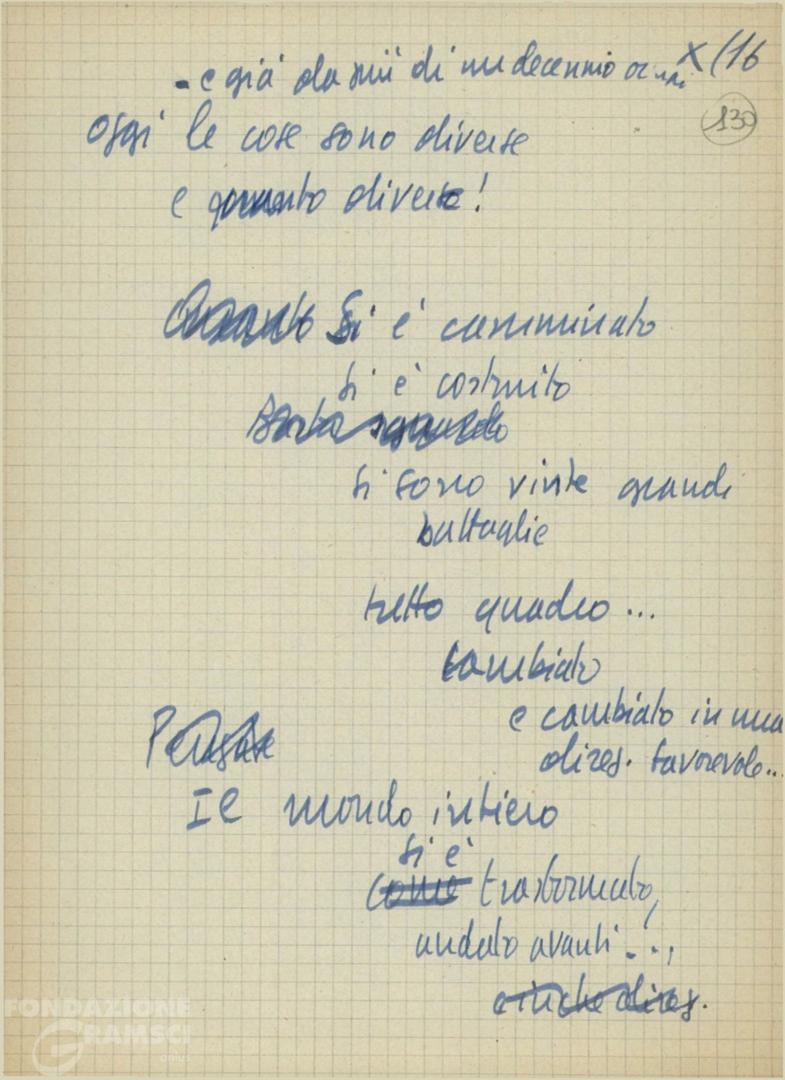 X/16
130
- e già da più di un decennio or
oggi le cose sono diverse
e quanto diverse!
Quanto Si è camminato
si è costruito
Basta sguardo
si sono vinte grandi
battaglie
tutto quadro...
cambiato
e cambiato in una
direz. favorevole...
Pensate
Il mondo intiero
si è
come trasformato,
andato avanti...,
e in che direz.
FONDAZIONE
GRAMSCI
onlus